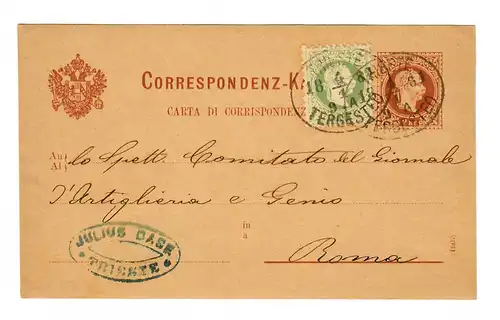 CORRESPONDENZ-KA
CARTA DI CORRISPONDENZ
18 6/4 81
9-12
TERGESTEO
TERGESTEO
An
Al
lo Spett. Comitato del Giornale
d'Artiglieria e Genio
in
a
Roma
(Ital.)
JULIUS DASE
TRIESTE